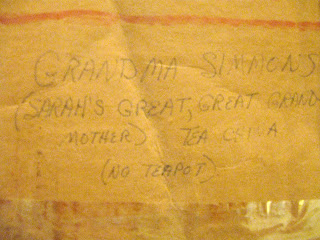 GRANDMA SIMMONS
(SARAH'S GREAT, GREAT GRAND-
MOTHER) TEA CHINA
(NO TEAPOT)